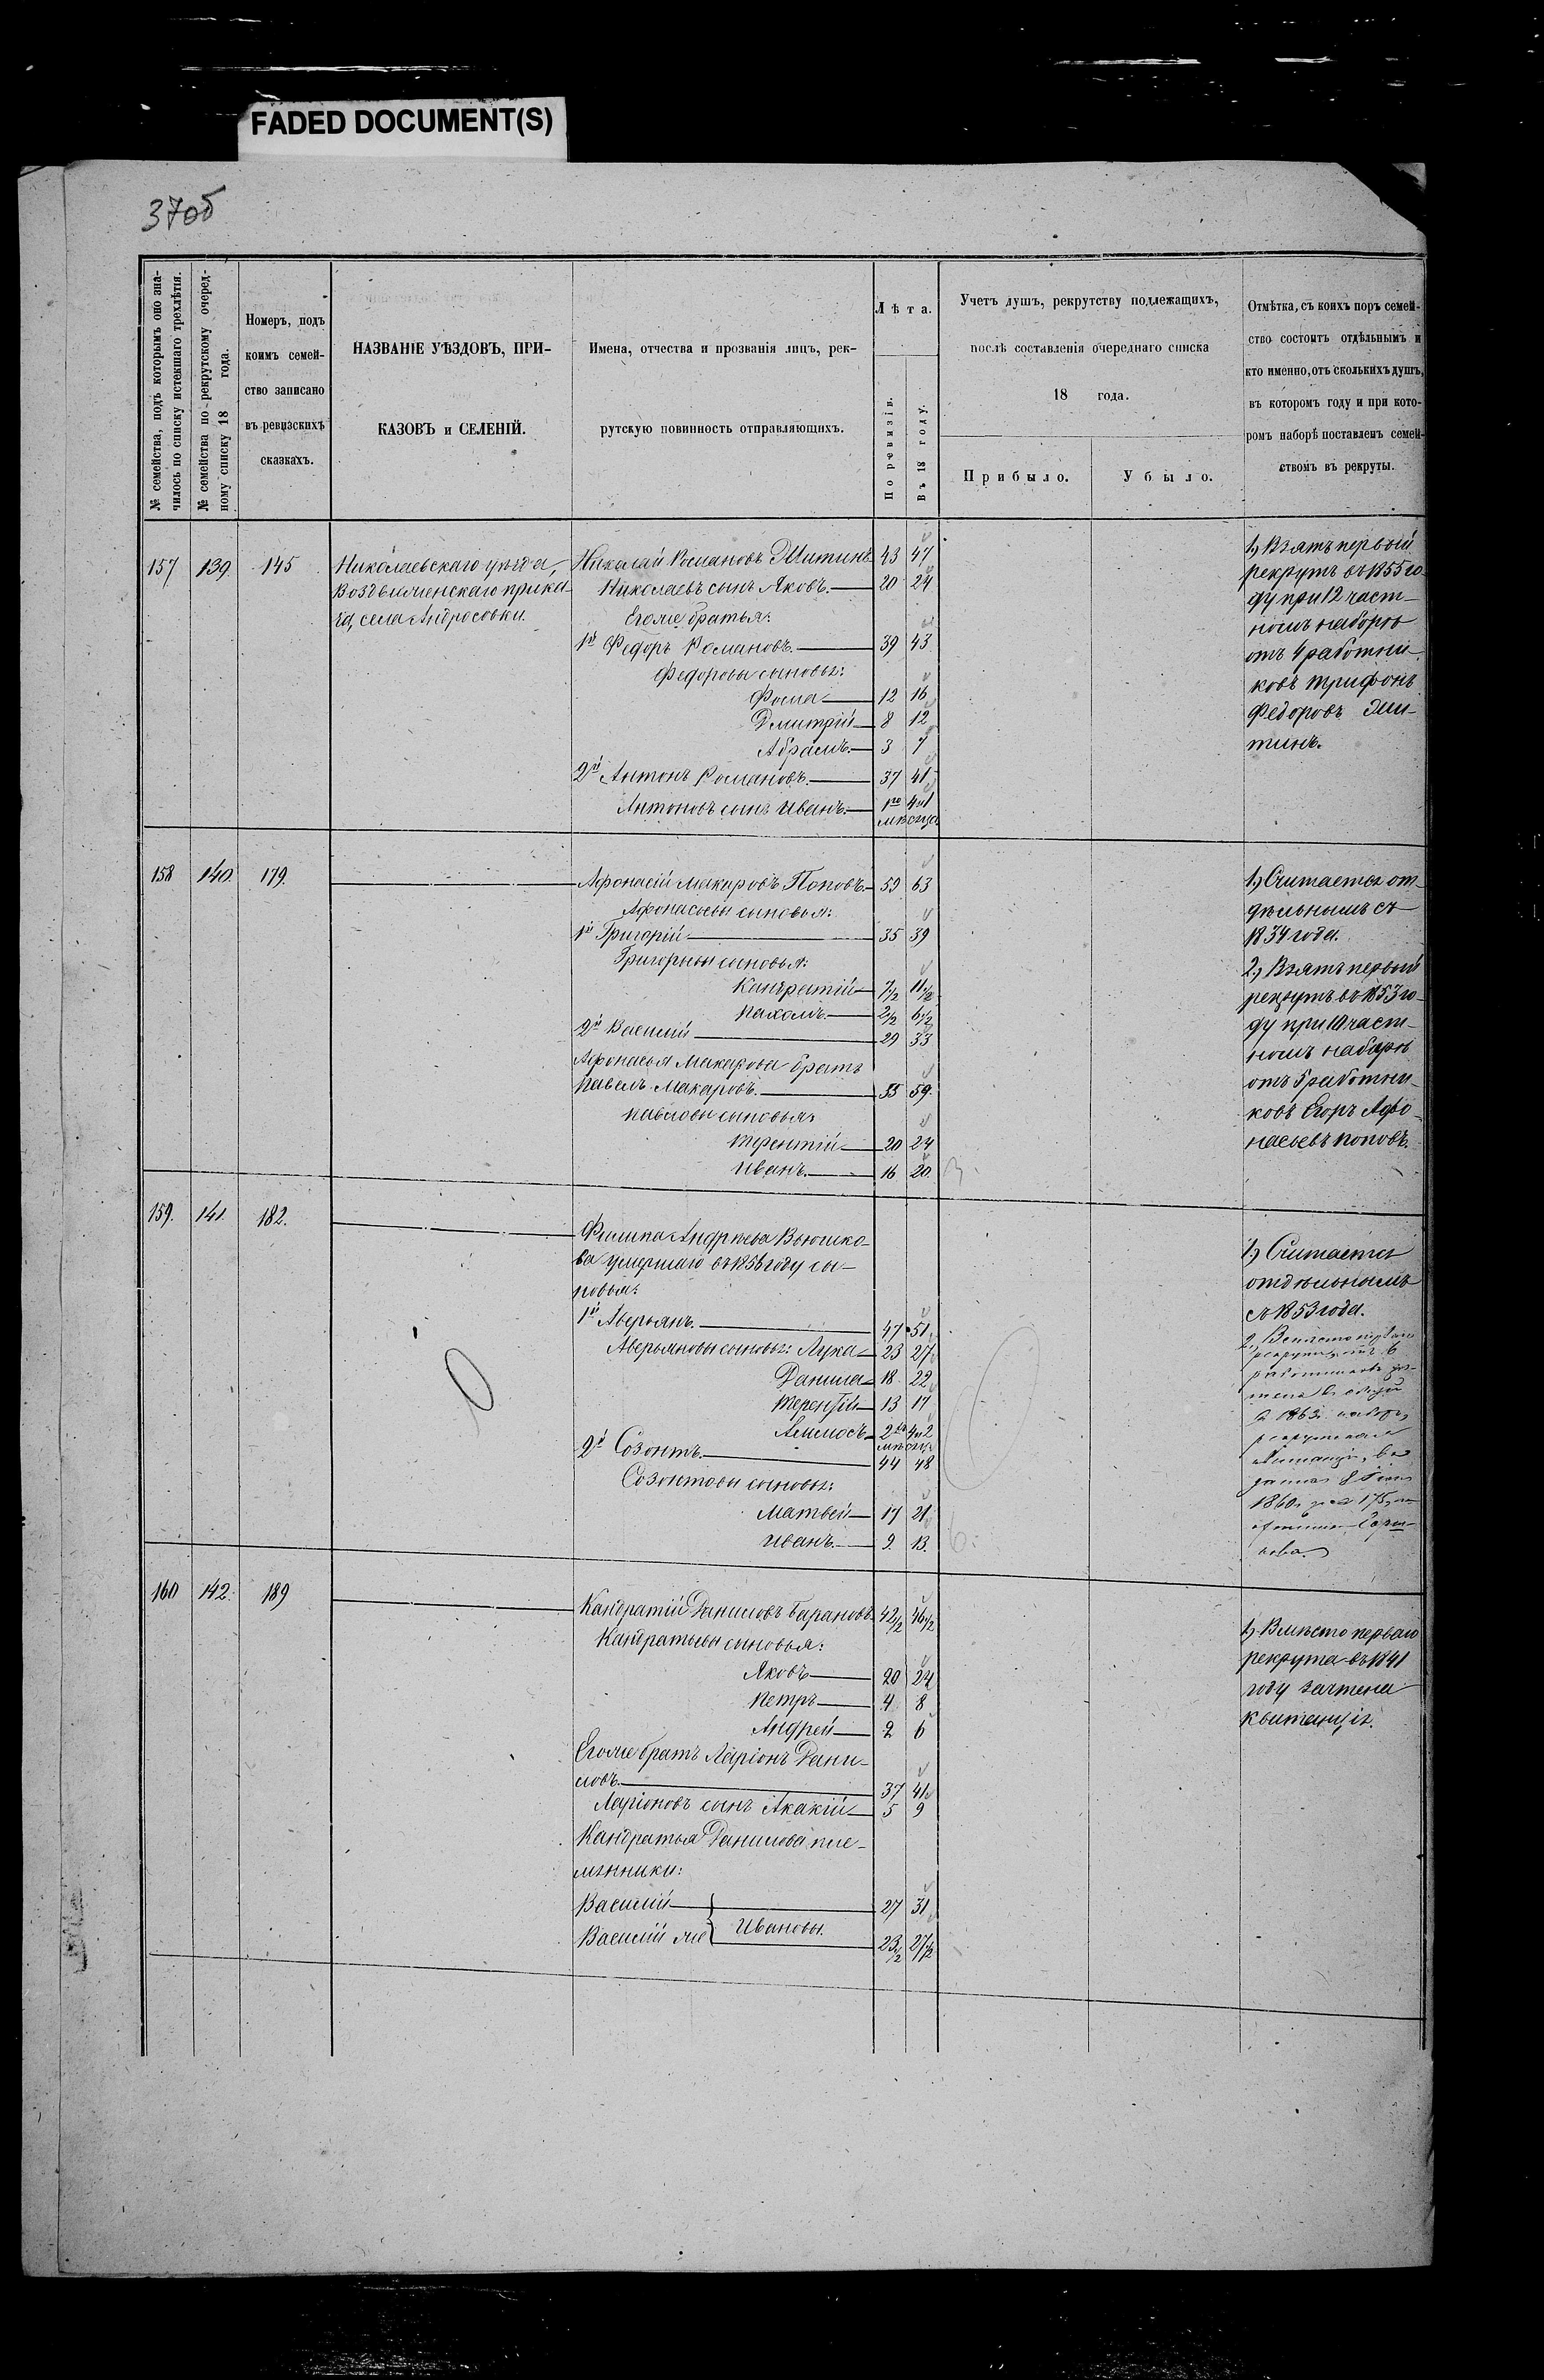 FADED DOCUMENT(S)
37об
№ семейства, подъ которымъ оно зна-
чилось по списку истекшаго трехлѣтія.
№ семейства по рекрутскому очеред-
ному списку 18 года.
Номеръ, подъ
коимъ семей-
ство записано
въ ревизскихъ
сказкахъ.
НАЗВАНІЕ УѢЗДОВЪ, ПРИ-
КАЗОВЪ и СЕЛЕНІЙ.
Имена, отчества и прозванія лицъ, рек-
рутскую повинность отправляющихъ.
Лѣта.
По ревизіи.
Въ 18 году.
Учетъ душъ, рекрутству подлежащихъ,
послѣ составленія очереднаго списка
18 года.
Прибыло.
Убыло.
Отмѣтка, съ коихъ поръ семей-
ство состоитъ отдѣльнымъ и
кто именно, отъ сколькихъ душъ,
въ которомъ году и при кото-
ромъ наборѣ поставленъ семей-
ствомъ въ рекруты.
157 139 145
Николаевскаго уѣзда,
Воздвиженскаго прика-
за, села Андросовки.
Николай Романовъ 43 47
Николаевъ сынъ Яковъ. 20 24
Егоже братья:
1й Федоръ Романовъ. 39 43
Федоровы сыновья:
Фома 12 16
Дмитрій 8 12
Абрамъ 3 7
2й Антонъ Романовъ. 37 41
Антоновъ сынъ Иванъ. 1го 4 и 1
мѣсяца
1, Взятъ первый
рекрутъ въ 1855 го-
ду при 12 част-
номъ наборѣ
отъ 4 работни-
ковъ Трифонъ
Федоровъ
158 140. 179.
Афонасій Макаровъ Поповъ. 59 63
Афонасьевы сыновья:
1й Григорій 35 39
Григорьевы сыновья:
Кандратій 7 1/2 11 1/2
Пахомъ. 2 1/2 6 1/2
2й Василій 29 33
Афонасья Макарова братъ
Павелъ Макаровъ. 55 59.
Павловы сыновья:
Терентій 20 24
Иванъ. 16 20.
3.
1, Считается от-
дѣльнымъ съ
1834 года.
2, Взятъ первый
рекрутъ въ 1853 го-
ду при 10 част-
номъ наборѣ
отъ 5 работни-
ковъ Егоръ Афо-
насьевъ Поповъ.
159. 141. 182.
Филипа Андреева Вьюшко-
ва умершаго въ 1856 году сы-
новья:
1й Аверьянъ. 47 51
Аверьяновы сыновья: Лука 23 27
Данила 18 22
Терентій 13 17
Аммосъ 2хъ 4 и 2
мѣсяц.
2й Созонтъ. 44 48
Созонтовы сыновья:
Матвей 17 21
Иванъ. 9. 13.
6.
1, Считается
отдѣльнымъ
съ 1853 года.
2, Вместо перваго
рекрута отъ 6
работниковъ
1863 наборъ
1860 175
160 142. 189
Кандратій Даниловъ Барановъ 42 1/2 46 1/2
Кандратьевы сыновья:
Яковъ 20 24
Петръ 4 8
Андрей 2 6
Егоже братъ Ларіонъ Дани-
ловъ. 37 41
Ларіоновъ сынъ Акакій 5 9
Кандратья Данилова пле-
мянники:
Василій 27 31
Ивановы.
Василій же 23 1/2 27 1/2
1, Вмѣсто перваго
рекрута въ 1841
году зачтена
квитанція.